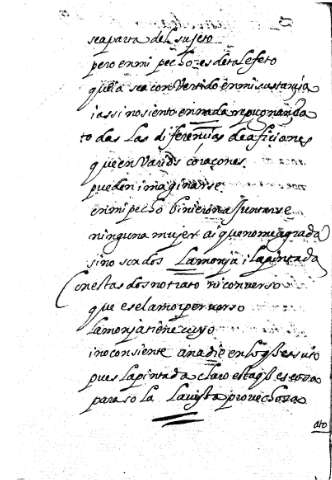 se aparta del sujeto
pero en mi pecho es de tal efeto
que la sea convertido en mi sustançia
i assi no siento en nada repunançia
todas las diferençias de afiçiones
que en varios coraçones
pueden imaginarse
en mi pecho binieron a juntarse
ninguna mujer ai que no me agrada
sino son dos la monja i la pintada
con estas dos no trato ni converso
que es el amor perverso
la monja tiene cuyo
i no consiente a nadie en lo q̃ es suio
pues la pintada claro esta q̃ es cosa
para solo la vista provechosa